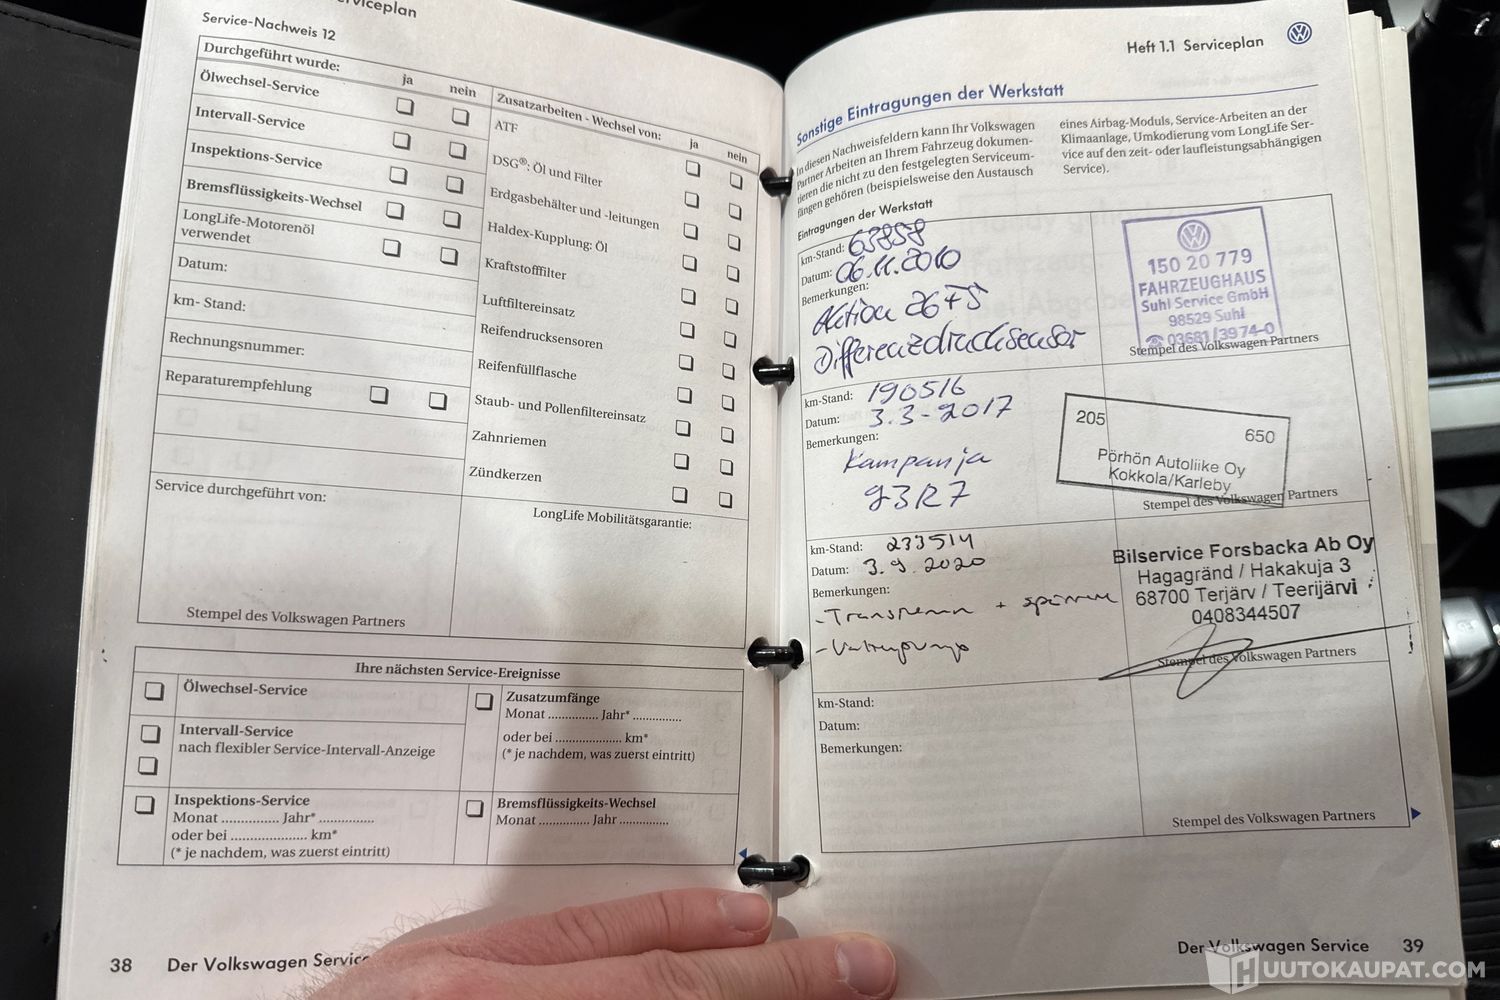 Serviceplan
Service-Nachweis 12
Durchgeführt wurde:
ja
nein
Ölwechsel-Service
Intervall-Service
Inspektions-Service
Bremsflüssigkeits-Wechsel
LongLife-Motorenöl
verwendet
Datum:
km- Stand:
Rechnungsnummer:
Reparaturempfehlung
Service durchgeführt von:
Stempel des Volkswagen Partners
Zusatzarbeiten - Wechsel von:
ja
nein
ATF
DSG®: Öl und Filter
Erdgasbehälter und -leitungen
Haldex-Kupplung: Öl
Kraftstofffilter
Luftfiltereinsatz
Reifendrucksensoren
Reifenfüllflasche
Staub- und Pollenfiltereinsatz
Zahnriemen
Zündkerzen
LongLife Mobilitätsgarantie:
Ihre nächsten Service-Ereignisse
Ölwechsel-Service
Intervall-Service
nach flexibler Service-Intervall-Anzeige
Inspektions-Service
Monat ............... Jahr* ..............
oder bei .................... km*
(* je nachdem, was zuerst eintritt)
Zusatzumfänge
Monat ............. Jahr* .............
oder bei .................. km*
(* je nachdem, was zuerst eintritt)
Bremsflüssigkeits-Wechsel
Monat ............. Jahr .............
38
Der Volkswagen Service
Heft 1.1 Serviceplan
Sonstige Eintragungen der Werkstatt
In diesen Nachweisfeldern kann Ihr Volkswagen
Partner Arbeiten an Ihrem Fahrzeug dokumen-
tieren die nicht zu den festgelegten Serviceum-
fängen gehören (beispielsweise den Austausch
eines Airbag-Moduls, Service-Arbeiten an der
Klimaanlage, Umkodierung vom LongLife Ser-
vice auf den zeit- oder laufleistungsabhängigen
Service).
Eintragungen der Werkstatt
km-Stand: 63858
Datum: 06.11.2010
Bemerkungen:
Aktion 26F5
Differenzdrucksensor
150 20 779
FAHRZEUGHAUS
Suhl Service GmbH
98529 Suhl
☎ 03681/3974-0
Stempel des Volkswagen Partners
km-Stand: 190516
Datum: 3.3-2017
Bemerkungen:
Kampanja
23R7
205
650
Pörhön Autoliike Oy
Kokkola/Karleby
Stempel des Volkswagen Partners
km-Stand: 233514
Datum: 3.9.2020
Bemerkungen:
- Vattenpump
Bilservice Forsbacka Ab Oy
Hagagränd / Hakakuja 3
68700 Terjärv / Teerijärvi
0408344507
Stempel des Volkswagen Partners
km-Stand:
Datum:
Bemerkungen:
Stempel des Volkswagen Partners
Der Volkswagen Service
39
HUUTOKAUPAT.COM